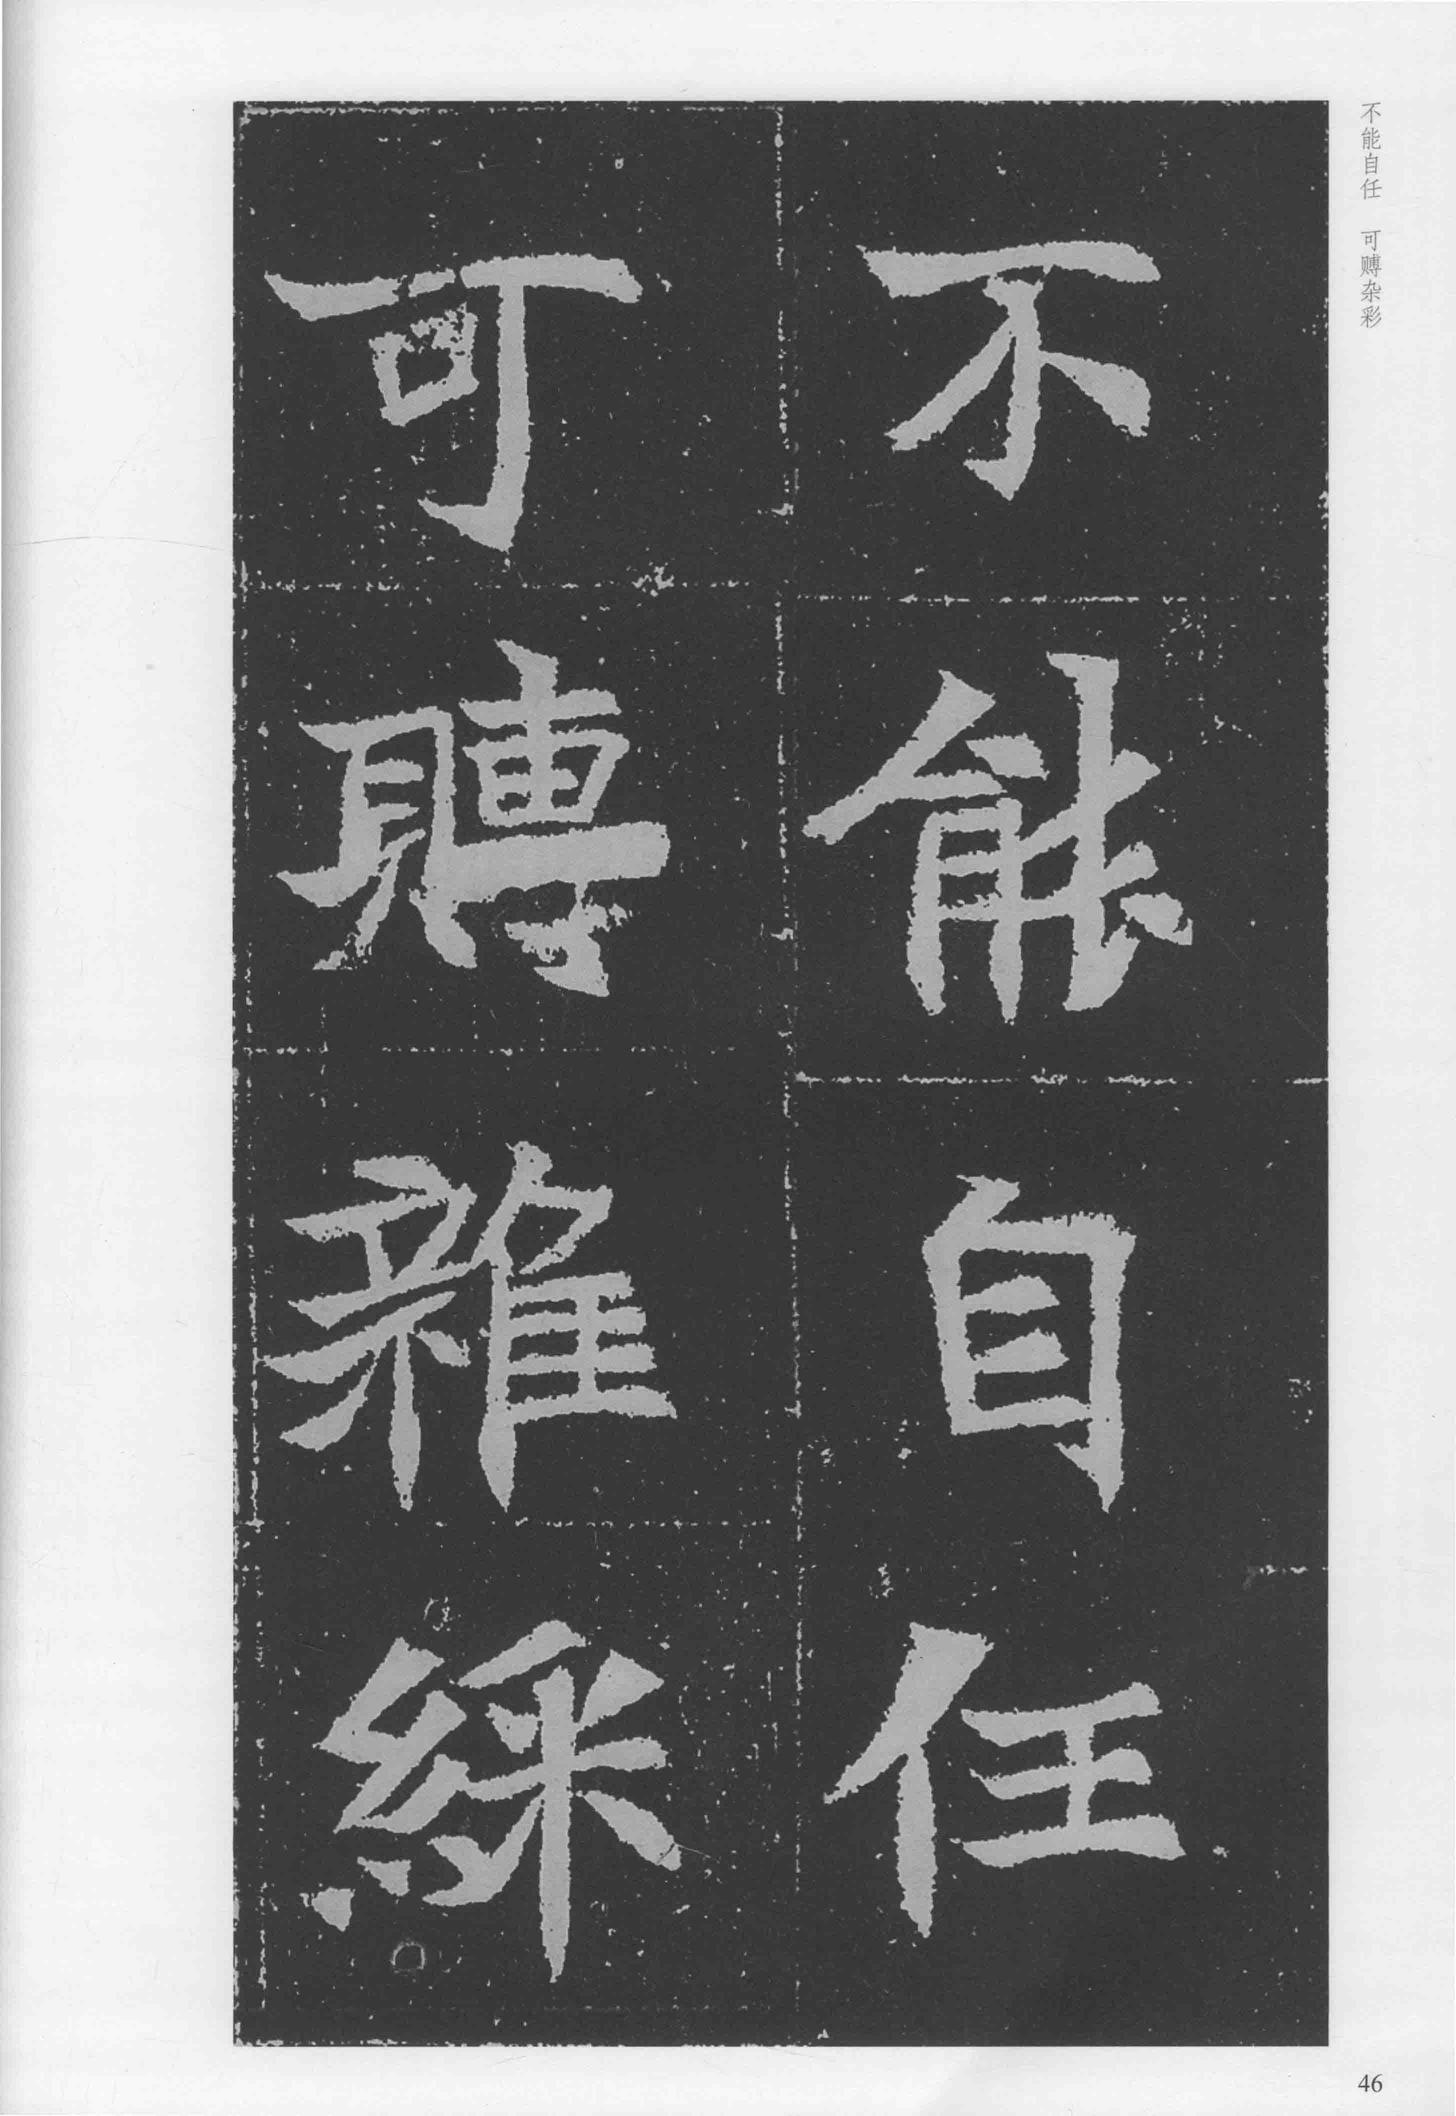 不能自任 可赙杂彩
不能自任
可賻雜綵
46